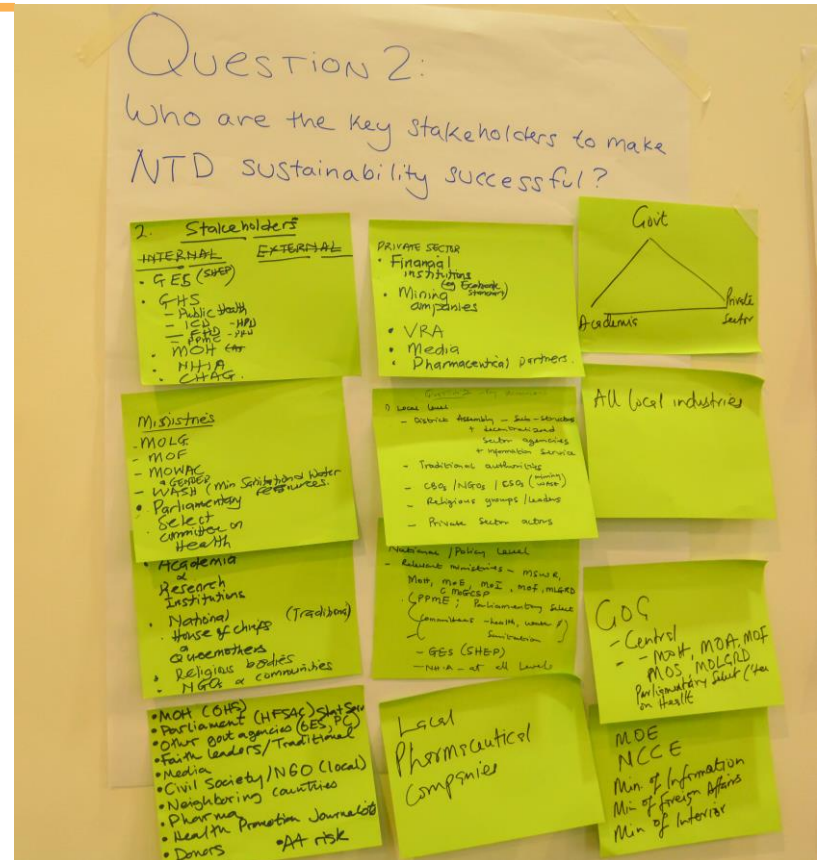 QUESTION 2:
Who are the key stakeholders to make
NTD sustainability successful?
2. Stakeholders
INTERNAL EXTERNAL
• GES (SHEP)
• GHS
– Public Health
– ICD – HPU
– PPME
• MOH
• NHIA
• CHAG.
PRIVATE SECTOR
• Financial
institutions
(eg Ecobank
• Mining
companies
• VRA
• Media
• Pharmaceutical partners.
Govt
Academia
Private
Sector
Ministries
- MOLG
- MOF
- MOWAC
& GENDER
- WASH (Min Sanitation & Water
resources.
• Parliamentary
Select
committee on
Health
1) Local level
- District Assembly – Sub-structures
+ decentralized
sector agencies
+ information service
- Traditional authorities
- CBOs / NGOs / CSOs (mining
WASH)
- Religious groups / leaders
- Private sector actors
All local industries
• Academia
&
Research
Institutions
• National (Traditional)
House of chiefs
&
Queenmothers
• Religious bodies
• NGOs & communities
National / Policy Level
- Relevant ministries – MSWR,
MoH, MoE, MoI, MoF, MLGRD
MGCSP
PPME; Parliamentary Select
Committees – health, water &
Sanitation
- GES (SHEP)
- NHIA – at all levels
GOG
- Central
- MOH, MOA, MOF
MOS, MOLGRD
Parliamentary Select C'ttee
on Health
• MOH (GHS)
• Parliament (HFSAC) Stat Serv
• Other govt agencies (GES, PC)
• Faith leaders/Traditional
• Media
• Civil Society/NGO (local)
• Neighboring countries
• Pharma
• Health Promotion Journalists
• Donors • At risk
Local
Pharmaceutical
Companies
MOE
NCCE
Min. of Information
Min of Foreign Affairs
Min of Interior